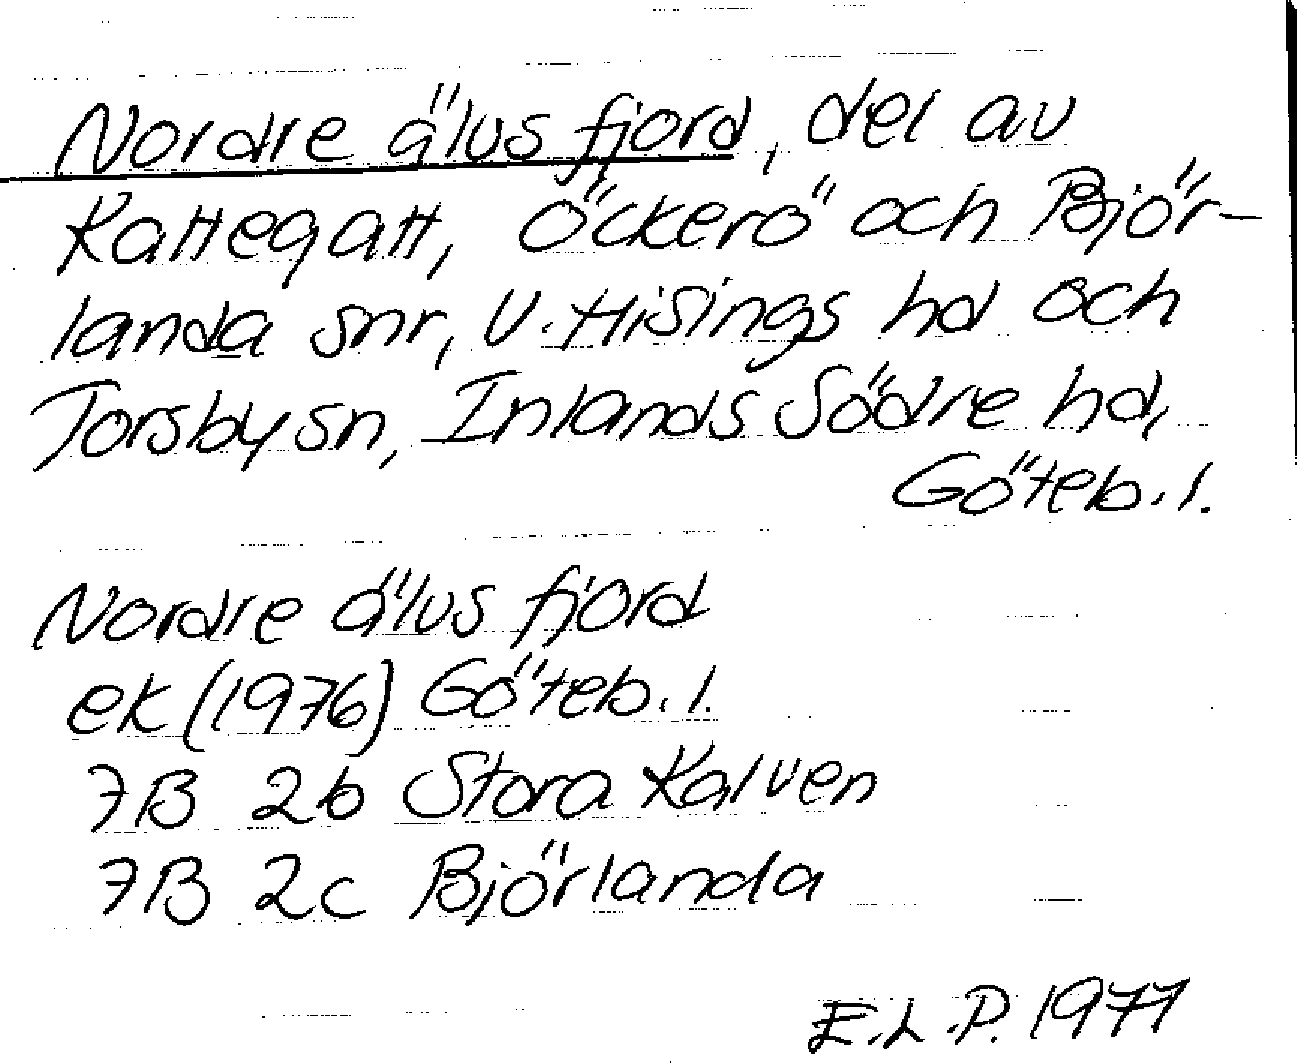 Nordre älvs fjord, del av
Kattegatt, Öckerö och Björ-
landa snr, V. Hisings hd och
Torsby sn, Inlands Södre hd,
Göteb. l.
Nordre älvs fjord
ek (1976) Göteb. l.
7B 2b Stora Kalven
7B 2c Björlanda
E.L.P. 1977